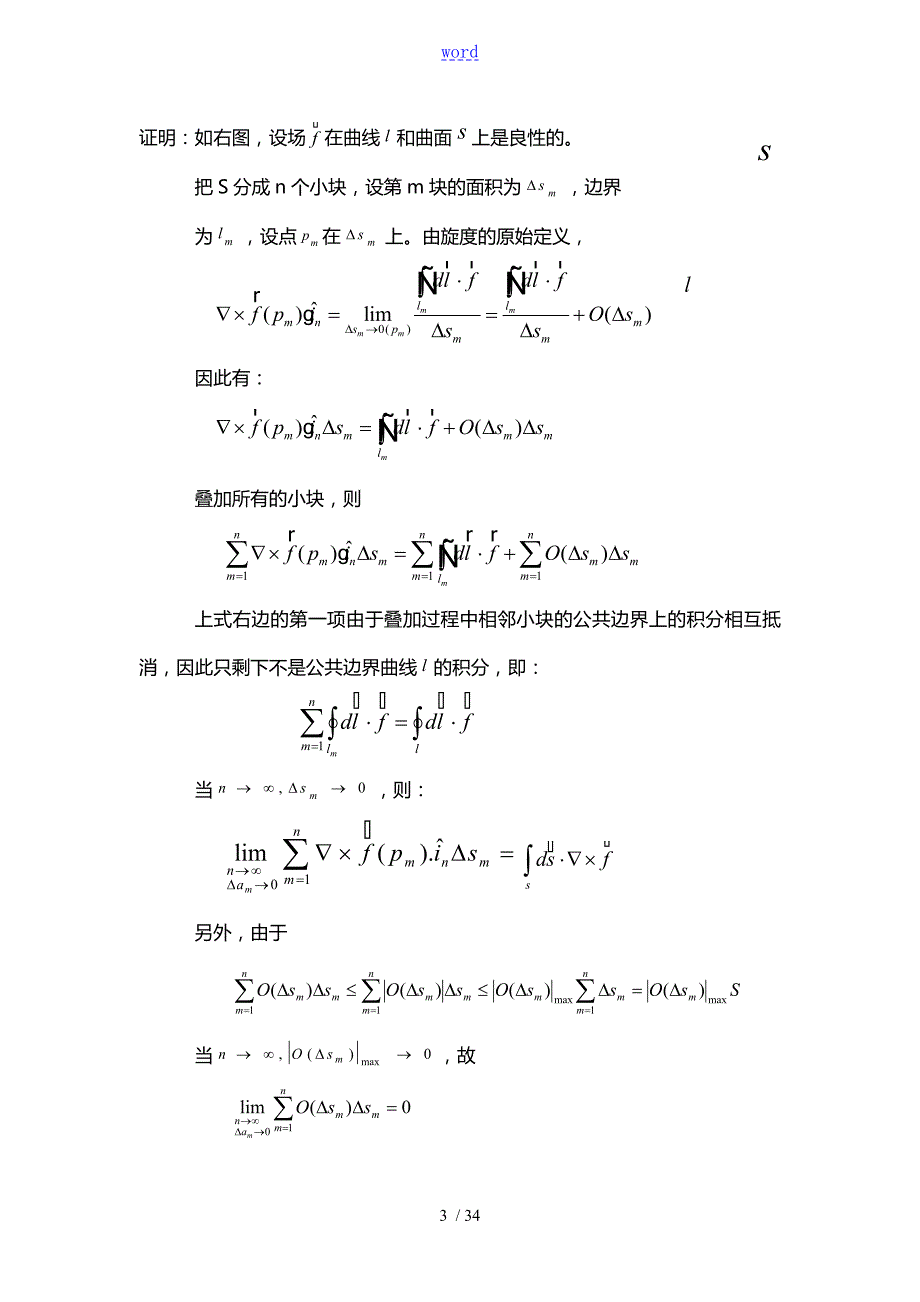 word
证明：如右图，设场 f 在曲线 l 和曲面 s 上是良性的。
s
把 S 分成 n 个小块，设第 m 块的面积为 Δs_m ，边界
为 l_m ，设点 p_m 在 Δs_m 上。由旋度的原始定义，
∇×f(p_m)g î_n = lim_{Δs_m→0(p_m)} Ñ∫_{l_m} dl·f / Δs_m = Ñ∫_{l_m} dl·f / Δs_m + O(Δs_m)
l
因此有：
∇×f(p_m)g î_n Δs_m = Ñ∫_{l_m} dl·f + O(Δs_m)Δs_m
叠加所有的小块，则
∑_{m=1}^{n} ∇×f(p_m)g î_n Δs_m = ∑_{m=1}^{n} Ñ∫_{l_m} dl·f + ∑_{m=1}^{n} O(Δs_m)Δs_m
上式右边的第一项由于叠加过程中相邻小块的公共边界上的积分相互抵
消，因此只剩下不是公共边界曲线 l 的积分，即：
∑_{m=1}^{n} ∮_{l_m} dl·f = ∮_l dl·f
当 n → ∞, Δs_m → 0 ，则：
lim_{n→∞, Δa_m→0} ∑_{m=1}^{n} ∇×f(p_m).î_n Δs_m = ∫_s ds·∇×f
另外，由于
∑_{m=1}^{n} O(Δs_m)Δs_m ≤ ∑_{m=1}^{n} |O(Δs_m)|Δs_m ≤ |O(Δs_m)|_max ∑_{m=1}^{n} Δs_m = |O(Δs_m)|_max S
当 n → ∞, |O(Δs_m)|_max → 0 ，故
lim_{n→∞, Δa_m→0} ∑_{m=1}^{n} O(Δs_m)Δs_m = 0
3 / 34